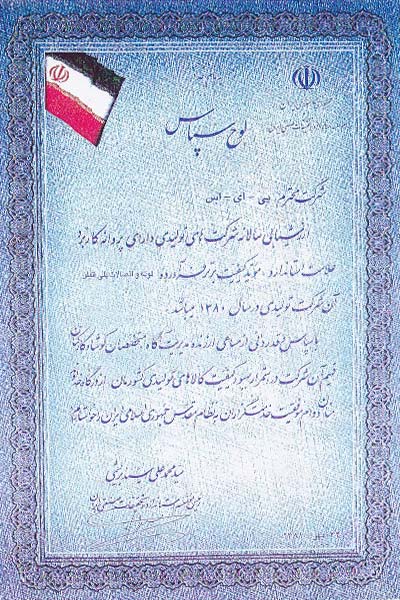 لوح سپاس
شرکت محترم پی - ای - اس
ارزشیابی سالانه شرکت های تولیدی دارای پروانه کاربرد
علامت استاندارد، مؤید کیفیت برتر فرآورده لوله و اتصالات پلی اتیلن
آن شرکت تولیدی در سال ۱۳۸۰ میباشد.
با سپاس و قدردانی از مساعی ارزنده مدیریت آگاه و متخصصان کوشا و کارکنان
فهیم آن شرکت در استمرار بهبود کیفیت کالاهای تولیدی کشورمان، از درگاه خداوند
منان دوام توفیق خدمتگزاران به نظام مقدس جمهوری اسلامی ایران را خواستاریم
سید محمد علی سید ابریشمی